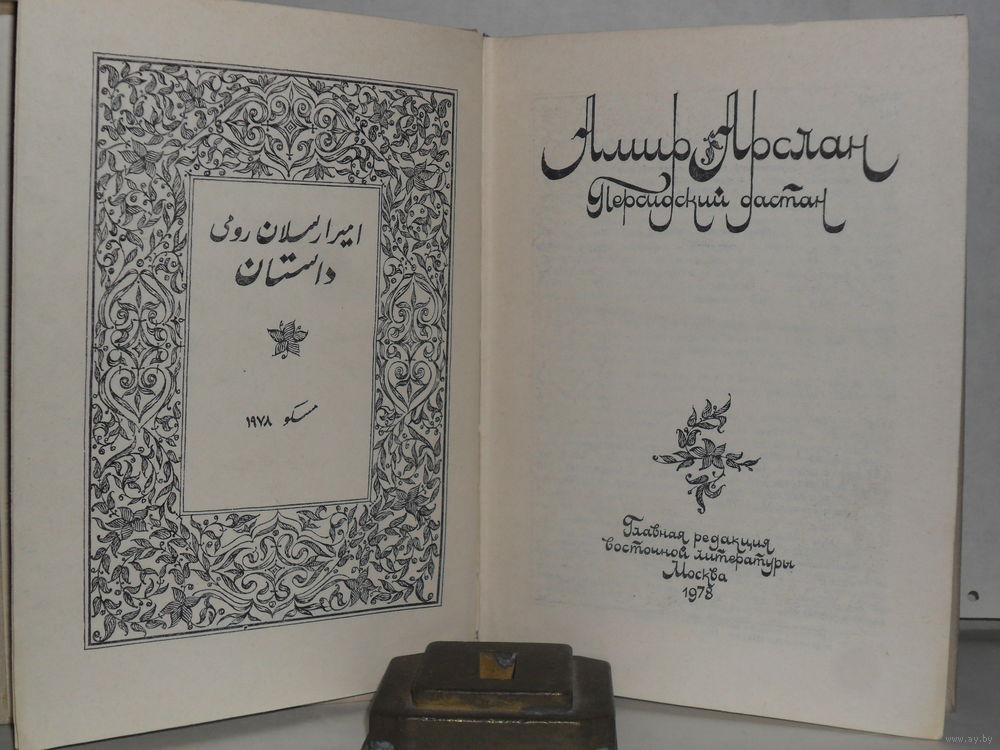 امیر ارسلان رومی
داستان
مسکو ۱۹۷۸
Амир Арслан
Персидский дастан
Главная редакция
восточной литературы
Москва
1978
www.ay.by